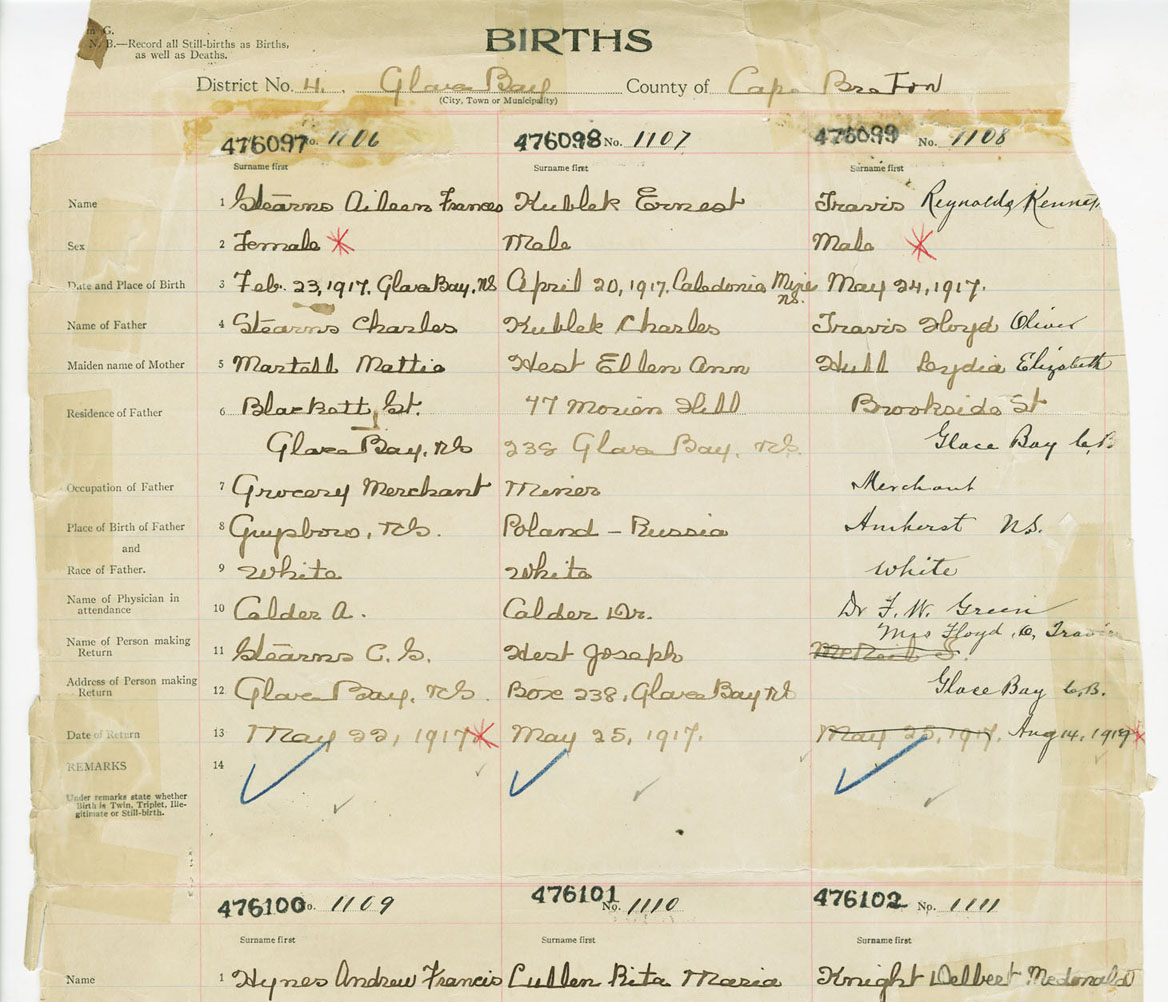 N. B.—Record all Still-births as Births,
as well as Deaths.
BIRTHS
District No. 4. Glace Bay County of Cape Breton
(City, Town or Municipality)
476097 No. 1106 476098 No. 1107 476099 No. 1108
Surname first Surname first Surname first
Name 1 Stearns Aileen Frances Kublek Ernest Travis Reynolds Kenneth
Sex 2 Female Male Male
Date and Place of Birth 3 Feb. 23, 1917. Glace Bay, NS April 20, 1917. Caledonia Mines NS. May 24, 1917.
Name of Father 4 Stearns Charles Kublek Charles Travis Floyd Oliver
Maiden name of Mother 5 Martell Mattie Hest Ellen Ann Hull Lydia Elizabeth
Residence of Father 6 Blackett St. 47 Morien Hill Brookside St
Glace Bay, NS 238 Glace Bay, NS. Glace Bay C.B.
Occupation of Father 7 Grocery Merchant Miner Merchant
Place of Birth of Father 8 Guysboro, NS. Poland – Russia Amherst NS.
and
Race of Father. 9 White White White
Name of Physician in
attendance 10 Calder A. Calder Dr. Dr F. W. Green
Mrs Floyd. O. Travis
Name of Person making
Return 11 Stearns C. S. Hest Joseph
Address of Person making
Return 12 Glace Bay, NS. Box 238, Glace Bay NS Glace Bay C.B.
Date of Return 13 May 22, 1917 May 25, 1917. May 25, 1917. Aug 14, 1919
REMARKS 14
Under remarks state whether
Birth is Twin, Triplet, Ille-
gitimate or Still-birth.
476100 No. 1109 476101 No. 1110 476102 No. 1111
Surname first Surname first Surname first
Name 1 Hynes Andrew Francis Cullen Rita Maria Knight Delbert McDonald